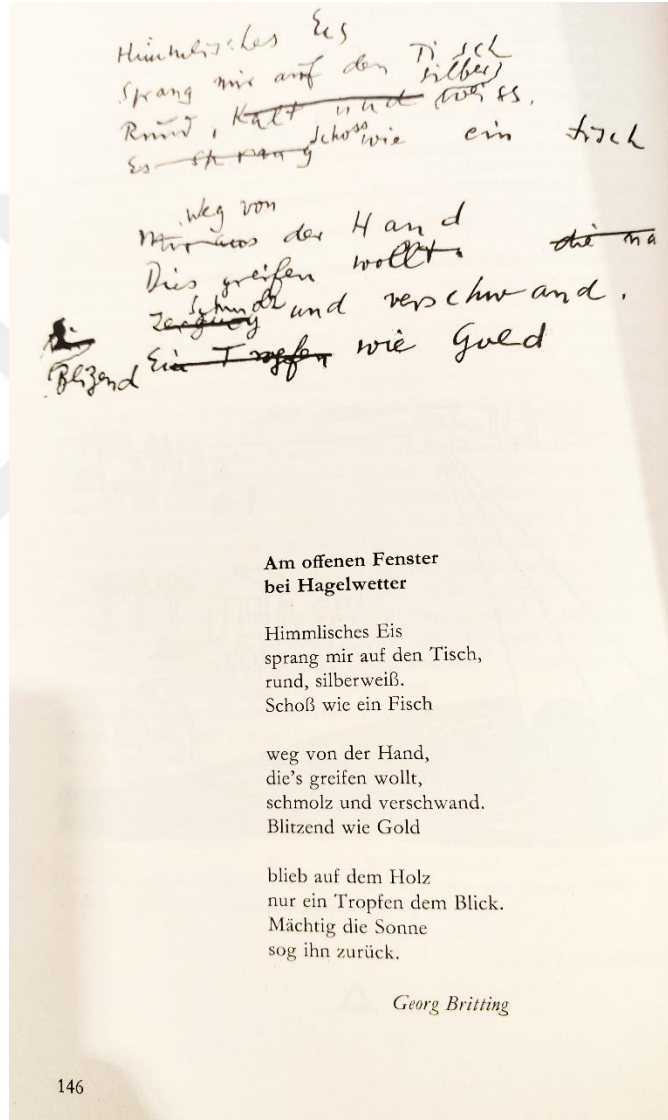 Himmlisches Eis
Sprang mir auf den Tisch
silber
Rund, Kalt und weiss.
Es sprang schoss wie ein Fisch
weg von
Mir aus der Hand
Dies greifen wollt. die
schmolz
und verschwand.
Blizend Ein Tropfen wie Gold
Am offenen Fenster
bei Hagelwetter
Himmlisches Eis
sprang mir auf den Tisch,
rund, silberweiß.
Schoß wie ein Fisch
weg von der Hand,
die's greifen wollt,
schmolz und verschwand.
Blitzend wie Gold
blieb auf dem Holz
nur ein Tropfen dem Blick.
Mächtig die Sonne
sog ihn zurück.
Georg Britting
146